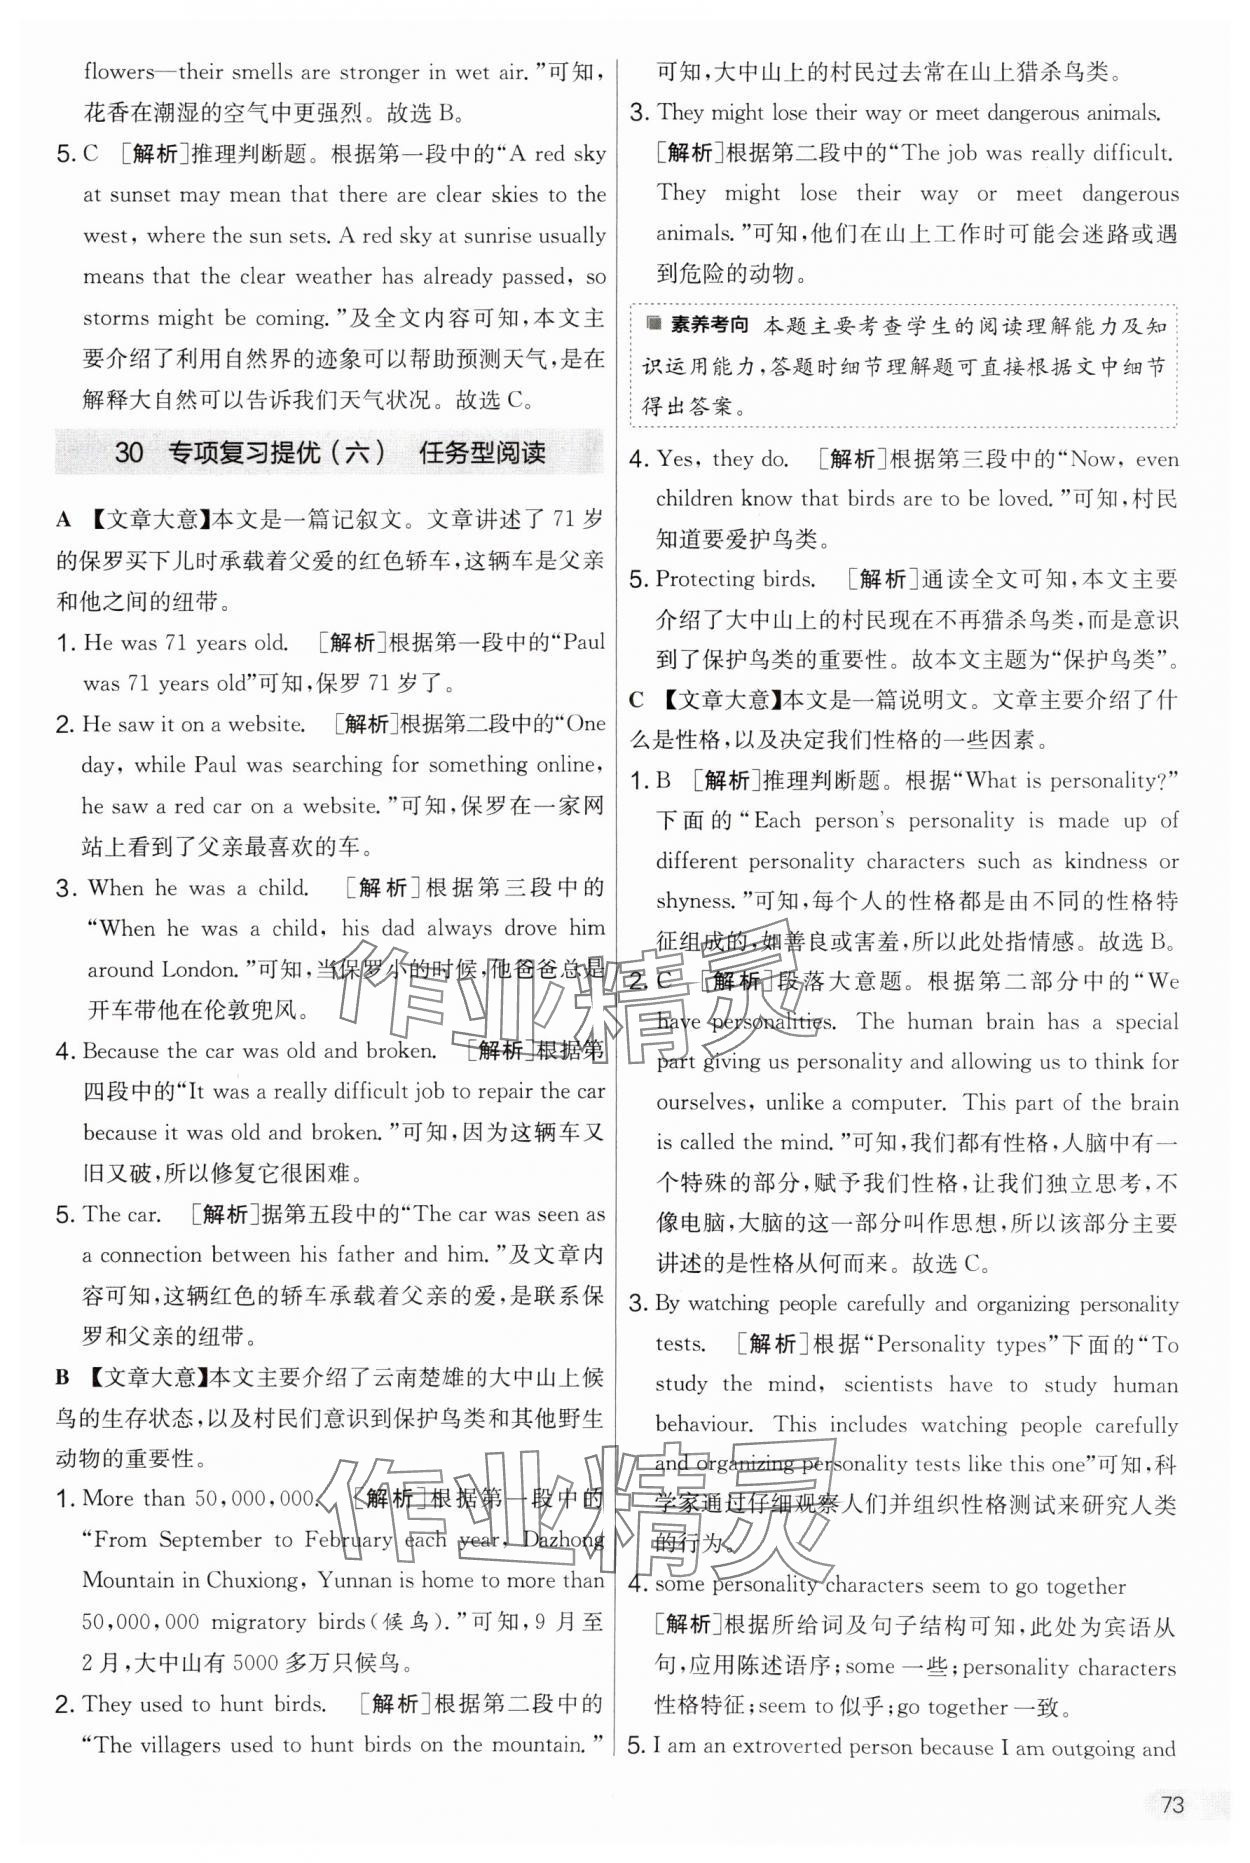 flowers—their smells are stronger in wet air.”可知，
花香在潮湿的空气中更强烈。故选 B。
5. C ［解析］推理判断题。根据第一段中的“A red sky
at sunset may mean that there are clear skies to the
west, where the sun sets. A red sky at sunrise usually
means that the clear weather has already passed, so
storms might be coming.”及全文内容可知，本文主
要介绍了利用自然界的迹象可以帮助预测天气，是在
解释大自然可以告诉我们天气状况。故选 C。
30 专项复习提优（六） 任务型阅读
A 【文章大意】本文是一篇记叙文。文章讲述了 71 岁
的保罗买下儿时承载着父爱的红色轿车，这辆车是父亲
和他之间的纽带。
1. He was 71 years old. ［解析］根据第一段中的“Paul
was 71 years old”可知，保罗 71 岁了。
2. He saw it on a website. ［解析］根据第二段中的“One
day, while Paul was searching for something online,
he saw a red car on a website.”可知，保罗在一家网
站上看到了父亲最喜欢的车。
3. When he was a child. ［解析］根据第三段中的
“When he was a child, his dad always drove him
around London.”可知，当保罗小的时候，他爸爸总是
开车带他在伦敦兜风。
4. Because the car was old and broken. ［解析］根据第
四段中的“It was a really difficult job to repair the car
because it was old and broken.”可知，因为这辆车又
旧又破，所以修复它很困难。
5. The car. ［解析］据第五段中的“The car was seen as
a connection between his father and him.”及文章内
容可知，这辆红色的轿车承载着父亲的爱，是联系保
罗和父亲的纽带。
B 【文章大意】本文主要介绍了云南楚雄的大中山上候
鸟的生存状态，以及村民们意识到保护鸟类和其他野生
动物的重要性。
1. More than 50,000,000. ［解析］根据第一段中的
“From September to February each year, Dazhong
Mountain in Chuxiong, Yunnan is home to more than
50,000,000 migratory birds（候鸟）.”可知，9 月至
2 月，大中山有 5000 多万只候鸟。
2. They used to hunt birds. ［解析］根据第二段中的
“The villagers used to hunt birds on the mountain.”
可知，大中山上的村民过去常在山上猎杀鸟类。
3. They might lose their way or meet dangerous animals.
［解析］根据第二段中的“The job was really difficult.
They might lose their way or meet dangerous
animals.”可知，他们在山上工作时可能会迷路或遇
到危险的动物。
素养考向 本题主要考查学生的阅读理解能力及知
识运用能力，答题时细节理解题可直接根据文中细节
得出答案。
4. Yes, they do. ［解析］根据第三段中的“Now, even
children know that birds are to be loved.”可知，村民
知道要爱护鸟类。
5. Protecting birds. ［解析］通读全文可知，本文主要
介绍了大中山上的村民现在不再猎杀鸟类，而是意识
到了保护鸟类的重要性。故本文主题为“保护鸟类”。
C 【文章大意】本文是一篇说明文。文章主要介绍了什
么是性格，以及决定我们性格的一些因素。
1. B ［解析］推理判断题。根据“What is personality?”
下面的“Each person's personality is made up of
different personality characters such as kindness or
shyness.”可知，每个人的性格都是由不同的性格特
征组成的，如善良或害羞，所以此处指情感。故选 B。
2. C ［解析］段落大意题。根据第二部分中的“We
have personalities. The human brain has a special
part giving us personality and allowing us to think for
ourselves, unlike a computer. This part of the brain
is called the mind.”可知，我们都有性格，人脑中有一
个特殊的部分，赋予我们性格，让我们独立思考，不
像电脑，大脑的这一部分叫作思想，所以该部分主要
讲述的是性格从何而来。故选 C。
3. By watching people carefully and organizing personality
tests. ［解析］根据“Personality types”下面的“To
study the mind, scientists have to study human
behaviour. This includes watching people carefully
and organizing personality tests like this one”可知，科
学家通过仔细观察人们并组织性格测试来研究人类
的行为。
4. some personality characters seem to go together
［解析］根据所给词及句子结构可知，此处为宾语从
句，应用陈述语序；some 一些；personality characters
性格特征；seem to 似乎；go together 一致。
5. I am an extroverted person because I am outgoing and
73
作业精灵
作业精灵